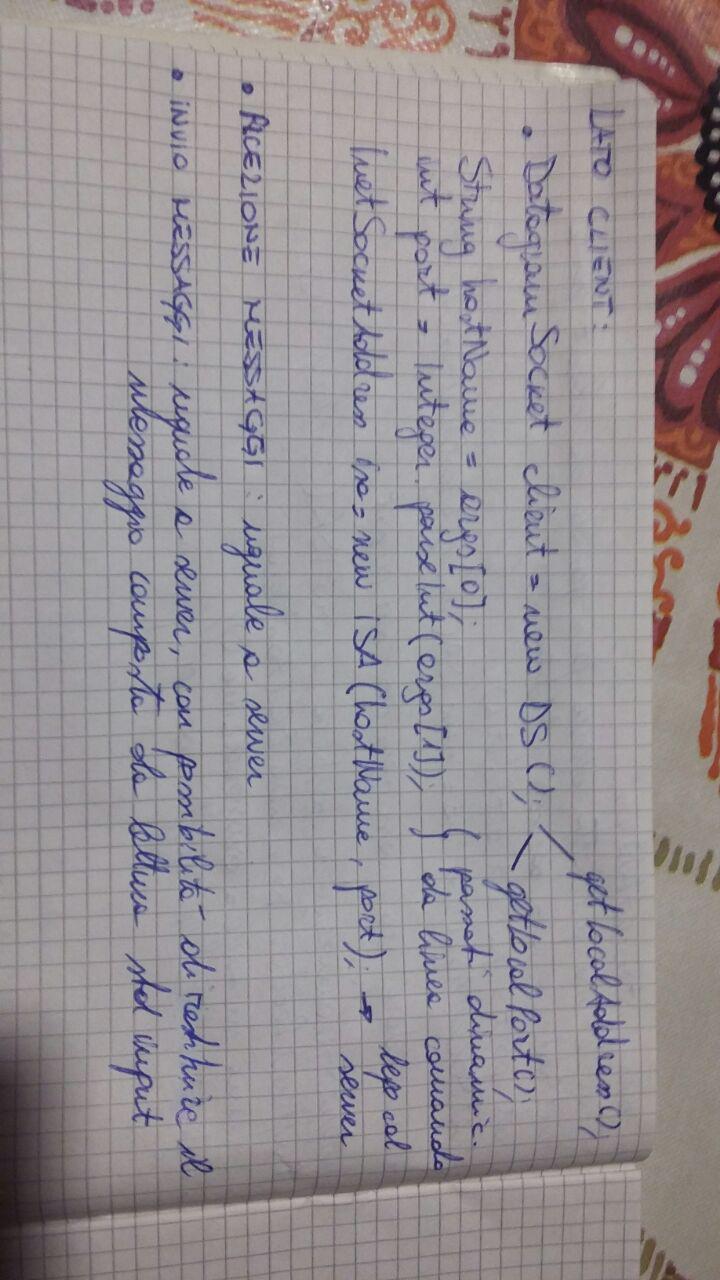 LATO CLIENT:
• DatagramSocket client = new DS(); getLocalAddress();
getLocalPort();
String hostName = args[0];
int port = Integer.parseInt(args[1]); } passati dinamic.
da linea comando
InetSocketAddress isa = new ISA(hostName, port); → legp al
server
• RICEZIONE MESSAGGI: uguale a server
• INVIO MESSAGGI: uguale a server, con possibilità di restituire il
messaggio composto da lettura std input